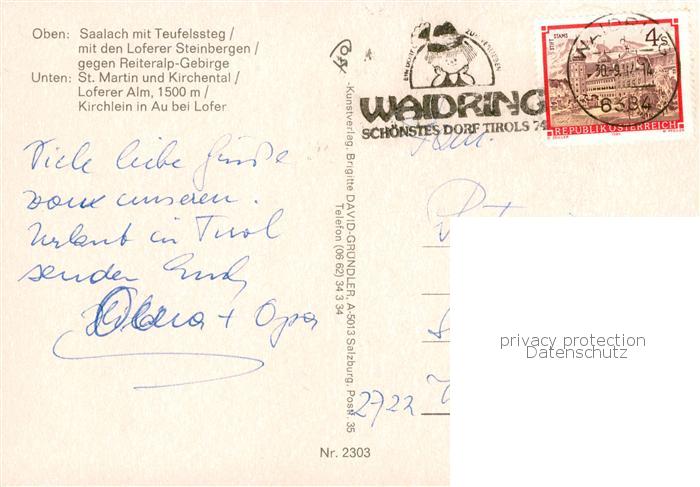 Oben: Saalach mit Teufelssteg /
mit den Loferer Steinbergen /
gegen Reiteralp-Gebirge
Unten: St. Martin und Kirchental /
Loferer Alm, 1500 m /
Kirchlein in Au bei Lofer
Viele liebe Grüße
vom unseren.
Urlaub in Tirol
senden Euch
Oma + Opa
Kunstverlag, Brigitte DAVID-GRÜNDLER, A-5013 Salzburg, Postf. 35
Telefon (06 62) 34 3 34
Nr. 2303
WAIDRING
SCHÖNSTES DORF TIROLS 74
STIFT STAMS
4 S
6384
REPUBLIK ÖSTERREICH
Fam.
2722
privacy protection
Datenschutz